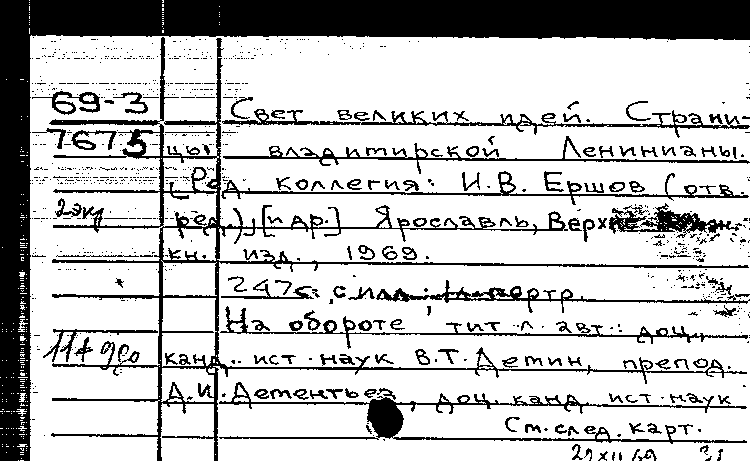 69-3
7675
Свет великих идей. Страни-
цы владимирской Ленинианы.
[Ред. коллегия: И.В. Ершов (отв.
2 экз
ред.)] [и др.] Ярославль, Верхне-
кн. изд., 1969.
247с. с илл. портр.
На обороте тит. л. авт.: доц.,
канд. ист. наук В.Т. Демин, препод.
Д.И. Дементьев, доц. канд. ист. наук
См. след. карт.
29 XII 69